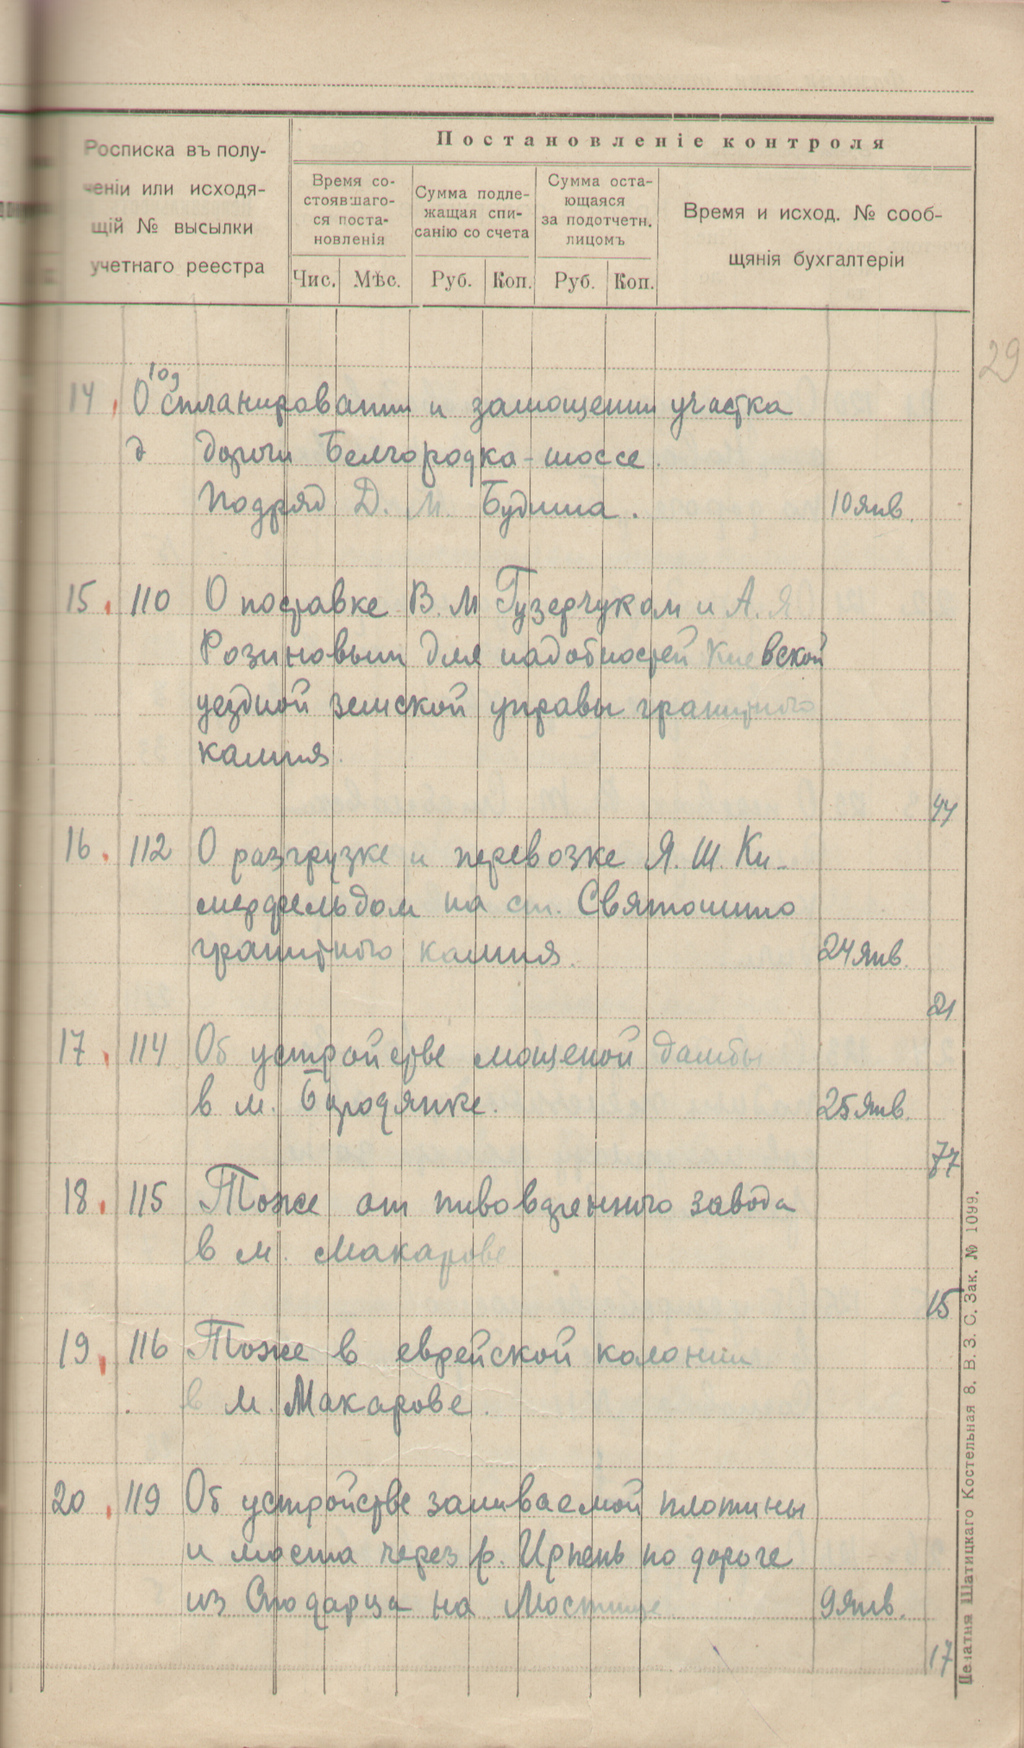 Постановленіе контроля
Росписка въ полу-
ченіи или исходя-
щій № высылки
учетнаго реестра
Время со-
стоявшаго-
ся поста-
новленія
Сумма подле-
жащая спи-
санію со счета
Сумма оста-
ющаяся
за подотчетн.
лицомъ
Время и исход. № сооб-
щянія бухгалтеріи
Чис. Мѣс. Руб. Коп. Руб. Коп.
29
109
14 О спланировании и замощении участка
дороги Белгородка-шоссе.
Подряд Д. М. Будника. 10 янв.
15. 110 О поставке В. М Гузерчуком и А. Я
Розиновым для надобностей Киевской
уездной земской управы гранитного
камня.
44
16. 112 О разгрузке и перевозке Я. Ш. Ки-
мерфельдом на ст. Святошино
гранитного камня. 24 янв.
21
17. 114 Об устройстве мощеной дамбы
в м. Бородянке. 25 янв.
77
18. 115 Тоже от пивоваренного завода
в м. Макарове
15
19. 116 Тоже в еврейской колонии
в м. Макарове.
20. 119 Об устройстве заливаемой плотины
и моста через р. Ирпень по дороге
из на Мостище 9 янв.
17
Печатня Шатицкаго Костельная 8. В. З. С. Зак. № 1099.